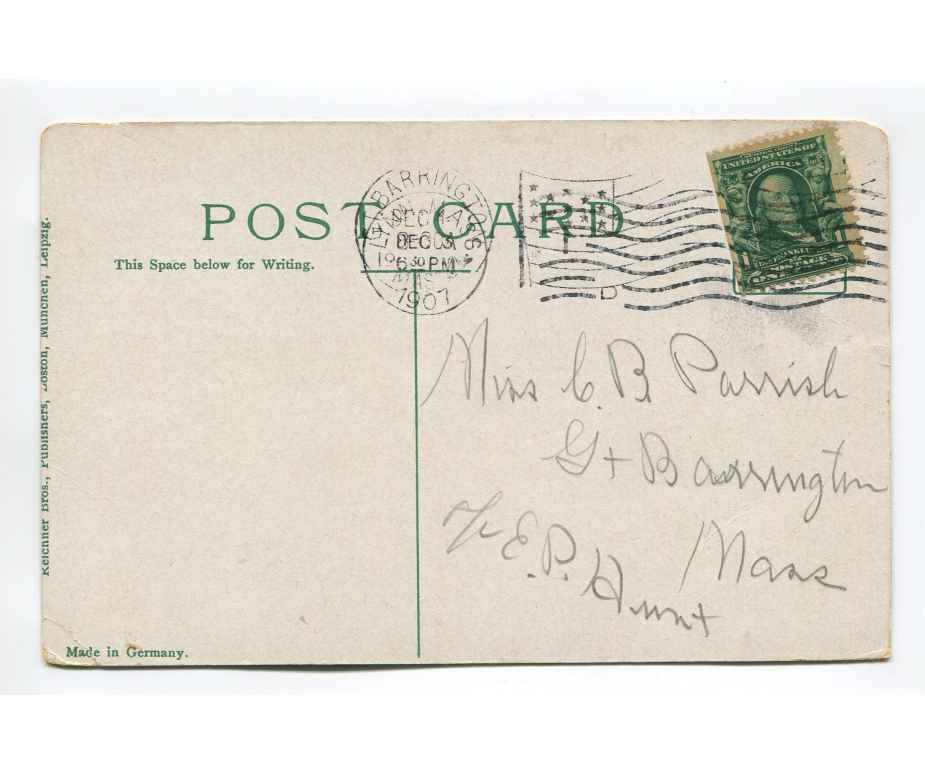 POST CARD
This Space below for Writing.
GT. BARRINGTON
MASS.
DEC 3
6 30 PM
1907
D
UNITED STATES OF
AMERICA
FRANKLIN
POSTAGE
Miss C. B. Parrish
Gt Barrington
Mass
℅ E. P. Hunt
Reichner Bros., Publishers, Boston, München, Leipzig.
Made in Germany.